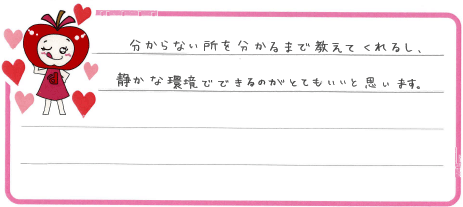 分からない所を分かるまで教えてくれるし、
静かな環境でできるのがとてもいいと思います。